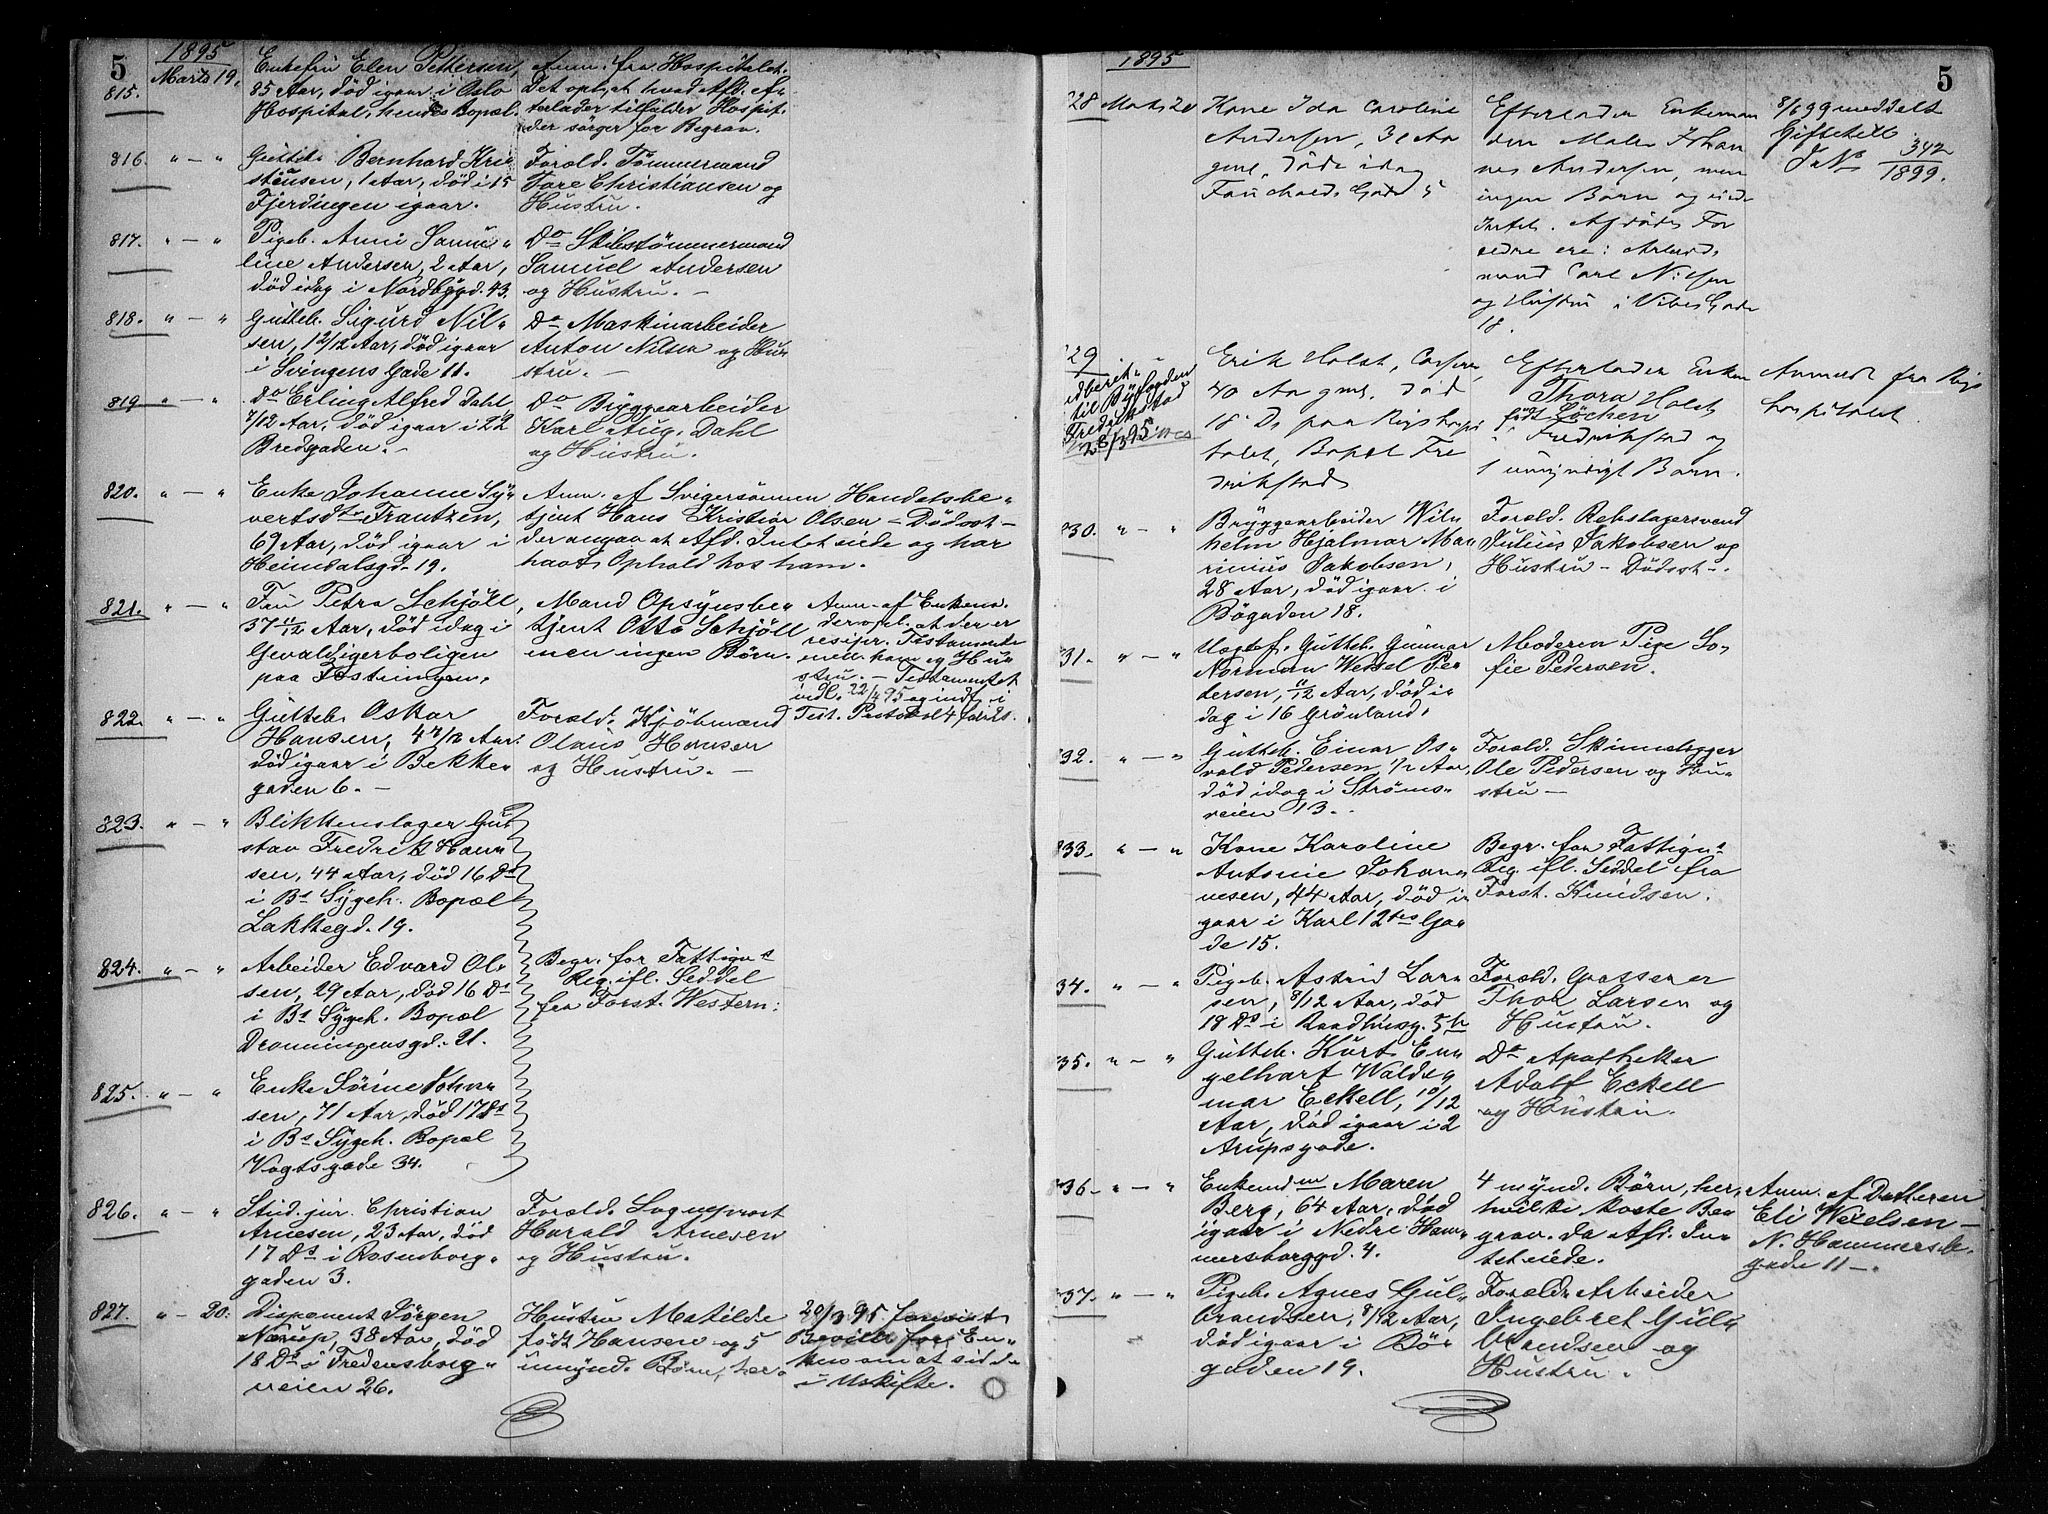 5
1895
815. Marts 19,
Enkefru Elen Pettersen,
85 Aar, död igaar i Oslo
Hospital, hendes Bopæl.
Anm. fra Hospitalet.
Det oplyst hvad Afd. ef-
terlader tilfalder Hospit-
der sörger for Begrav.
816. " — "
Gutteb. Bernhard Kri-
stensen, 1 Aar, död i 15
Fjerdingen igaar.
Foræld. Tömmermand
Tore Christiansen og
Hustru.
817. " — "
Pigeb. Anni Samu-
line Andersen, 2 Aar,
död idag i Nordbygd. 43.
Do Skibstömmermand
Samuel Andersen
og Hustru. —
818. " — "
Gutteb. Sigurd Nil-
sen, 1 2/12 Aar, död igaar
i Svingens Gade 11.
Do Maskinarbeider
Anton Nilsen og Hu-
stru. —
819 " — "
Do Erling Alfred Dahl
7/12 Aar, död igaar i 22
Bredgaden. —
Do Bryggearbeider
Karl Aug. Dahl
og Hustru.
820. " — "
Enke Johanne Sy-
vertsdtr Frantzen,
69 Aar, död igaar i
Heimdalsgd. 19.
Anm. af Svigersönnen Handelsbe-
tjent Hans Kristian Olsen — Dödsat —
der angav at Afd. Intet eiede og har
havt Ophold hos ham.
821. " — "
Fru Petra Schjöll,
37 11/12 Aar, död idag i
Gevaldigerboligen
paa Fæstningen,
Mand Opsynsbe-
tjent Otto Schjöll
men ingen Börn.
Anm. af Enkem.
der opl. at der er
resipr. Testamente
mell. ham og Hu-
stru. — Testamentet
indl. 22/4 95 og indf. i
Test. Protokol 4
822. " — "
Gutteb. Oskar
Hansen, 4 7/12 Aar.
död igaar i Bekke-
gaden 6. —
Foræld. Kjöbmand
Olaus Hansen
og Hustru. —
823. " — "
Blikkenslager Gu-
stav Fredrik Han-
sen, 44 Aar, död 16 Ds
i Bs Sygeh. Bopæl
Lakkegd. 19.
824. " — "
Arbeider Edvard Ol-
sen, 29 Aar, död 16 Ds
i Bs Sygeh. Bopæl
Dronningensgd. 21.
Begr. for Fattigv.s
Reg. ifl. Seddel
fra Forst. Western:
825. " — "
Enke Sörine John-
sen, 71 Aar, död 17 Ds
i Bs Sygeh. Bopæl
Vogtsgade 34.
826. " — "
Stud. jur. Christian
Arnesen, 23 Aar, död
17 Ds i Rosenborg-
gaden 3.
Foræld. Sogneprost
Harald Arnesen
og Hustru.
827. " — 20.
Disponent Jörgen
Nærup, 38 Aar, död
18 Ds i Fredensborg-
veien 26.
Hustru Matilde
födt Hansen og 5
umynd. Börn, her.
20/3 95 forevist
Bevill. for En-
ken om at sidde
i Uskifte.
5
1895
828 Marts 20
Kone Ida Caroline
Andersen, 31 Aar
gml, döde idag
Fauchalds Gade 5
Efterlader Enkeman-
den Maler Johan-
nes Andersen, men
ingen Barn og eiede
Intet. Afdödes For-
ældre ere: Arbeids-
mand Carl Nilsen
og Hustru i Vibes Gade
18.
8/6 99 meddelt
Gifteatt
J. No 342/1899.
829
til Byfogden
Fredrikstad
28/3 95.
Erik Holst,
40 Aar gml. död
18 Ds paa Rigshospi-
talet, Bopæl Fre-
drikstad
Efterlader Enken
Thora Holst
födt Löchen
i Fredrikstad og
1 umyndigt Barn.
Anmeldt fra Rigs-
hospitalet.
830. " — "
Bryggearbeider Wil-
helm Hjalmar Ma-
rinius Jakobsen,
28 Aar, död igaar i
Bögaden 18.
Foræld. Rebslagersvend
Julius Jakobsen og
Hustru — Dödsat —.
831. " — "
Uægtef. Gutteb. Gunnar
Norman Wessel Pe-
dersen, 11/12 Aar, död i-
dag i 16 Grönland.
Moderen Pige So-
fie Pedersen.
832. " — "
Gutteb. Einar Os-
vald Pedersen, 1/2 Aar,
död idag i Ströms-
veien 13.
Foræld. Skinnelægger
Ole Pedersen og Hu-
stru —
833. " — "
Kone Karoline
Antonie Johan-
nesen, 44 Aar, död i-
gaar i Karl 12tes Ga-
de 15.
Begr. for Fattigv.s
Reg. ifl. Seddel fra
Forst. Knudsen.
834. " — "
Pigeb. Astrid Lar-
sen, 8/12 Aar, död
18 Ds i Raadhusg. 5 b
Foræld. Grosserer
Thor Larsen og
Hustru.
835. " — "
Gutteb. Kurt En-
gelhart Walde-
mar Eckell, 10/12
Aar, död igaar i 2
Arupsgade.
Do Apotheker
Adolf Eckell
og Hustru.
836 — " — "
Enkemdm Maren
Berg, 64 Aar, död
igaar i Nedre Ham-
mersborggd. 4.
4 mynd. Börn, her,
hvilke koste Be-
grav. da Afd. In-
tet eiede.
Anm. af Datteren
Eli Weelsen —
N. Hammersb.
gade 11 —.
837. " — "
Pigeb. Agnes Gul-
brandsen, 8/12 Aar,
död igaar i Bör-
gaden 19.
Foræld. Arbeider
Ingebret Gul-
brandsen og
Hustru.